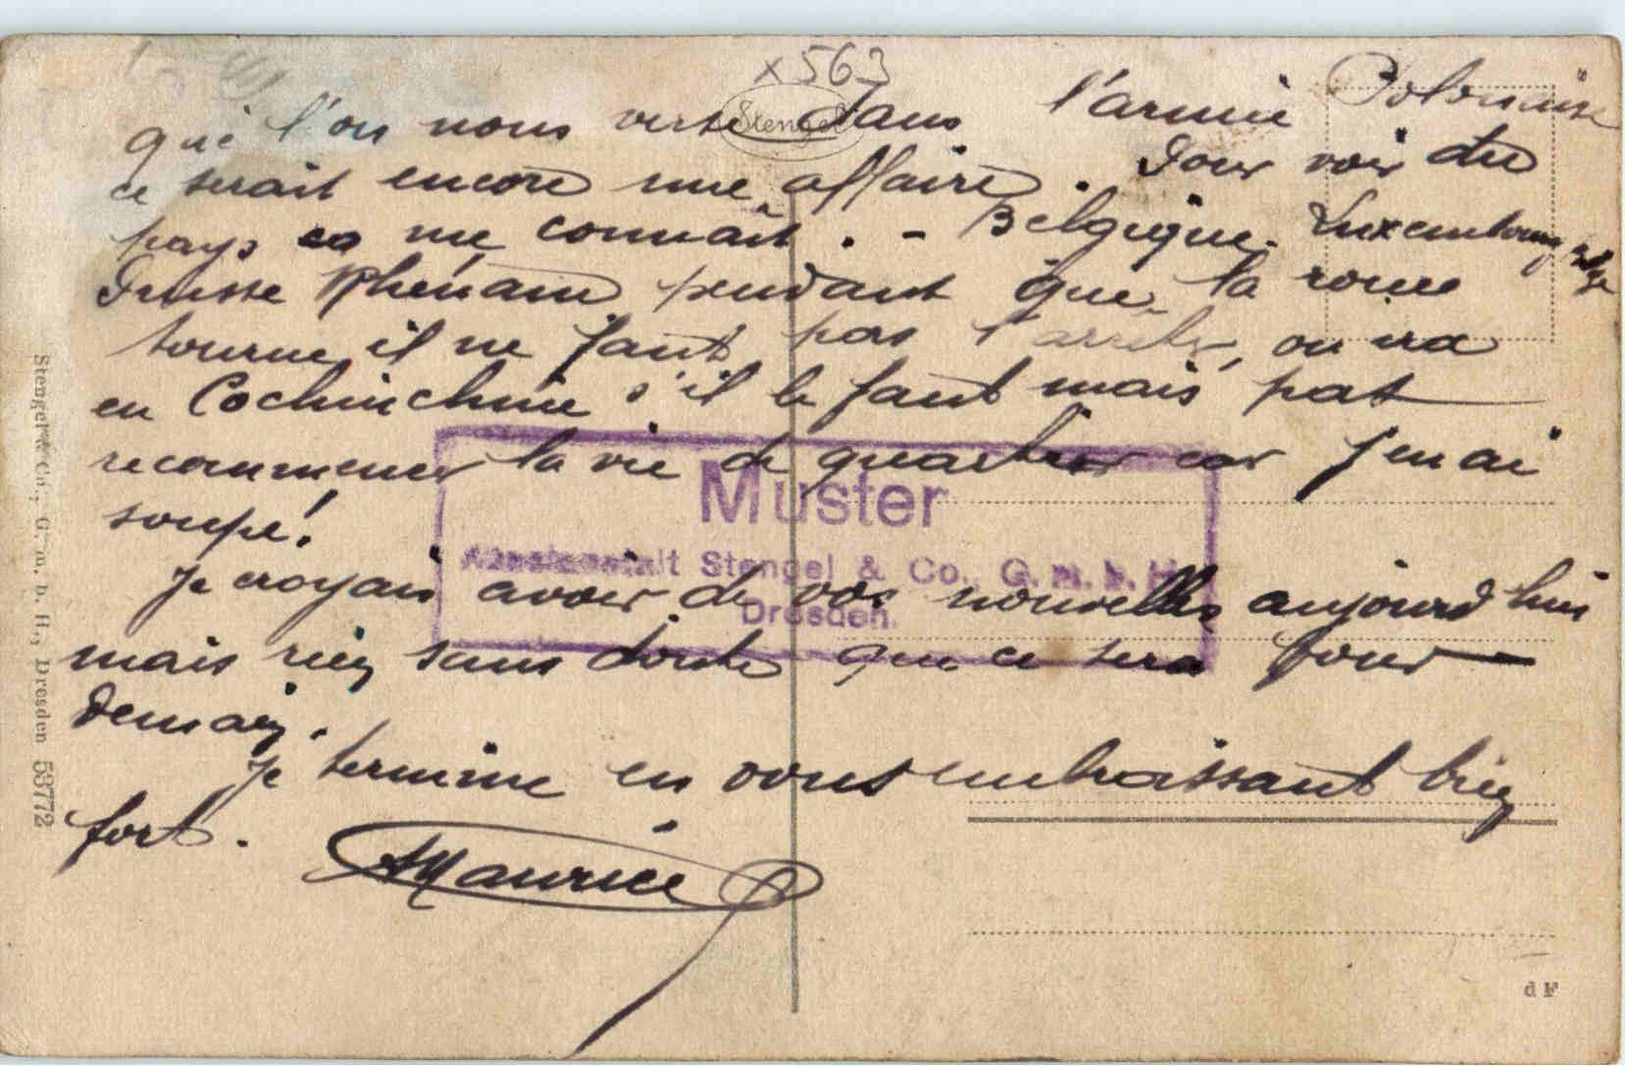 x 563
Stengel
que l'on nous verse dans l'armée Polonaise
ce serait encore une affaire. Pour voir du
pays ça me connait. - Belgique. Luxembourg
Prusse Rhénane pendant que la roue
tourne, il ne faut pas l'arrêter, on ira
en Cochinchine s'il le faut mais pas
recommencer la vie de quartier car j'en ai
soupé!
Je croyais avoir de vos nouvelles aujourd'hui
mais rien sans doute que ce sera pour
demain.
Je termine en vous embrassant bien
fort.
Maurice
Muster
Stengel & Co., G. m. b. H.
Dresden.
Stengel & Co., G. m. b. H., Dresden 53772
d F